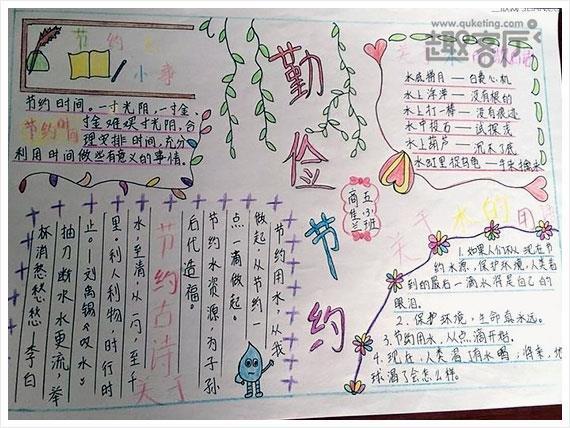 www.quketing.com
趣客厅
节约
小事
节约时间。一寸光阴,一寸金,
寸金难买寸光阴,合
节约时间
理安排时间,充分
利用时间做些有意义的事情。
勤俭节约
五(3)班
水底捞月—白费心机
水上浮萍—没有根的
水上打一棒—没有痕迹
水中投石—试深浅
水上葫芦—沉不了底
水缸里捉乌龟—手来擒来
节约用水,从我
做起,从节约一
点一滴做起。
节约水资源,为子孙
后代造福。
节约古诗
水,至清,从一勺,至千
里。利人利物,时行时
止。—刘禹锡《叹水》
抽刀断水水更流,举
杯消愁愁愁愁 李白
关于水的
1.如果人们不从现在节
约水源,保护环境,人类看
到的最后一滴水将是自己的
眼泪。
2.保护环境,生命真永远。
3.节约用水,从点滴开始。
4.现在,人类渴了有水喝;将来,地
球渴了会怎么样。